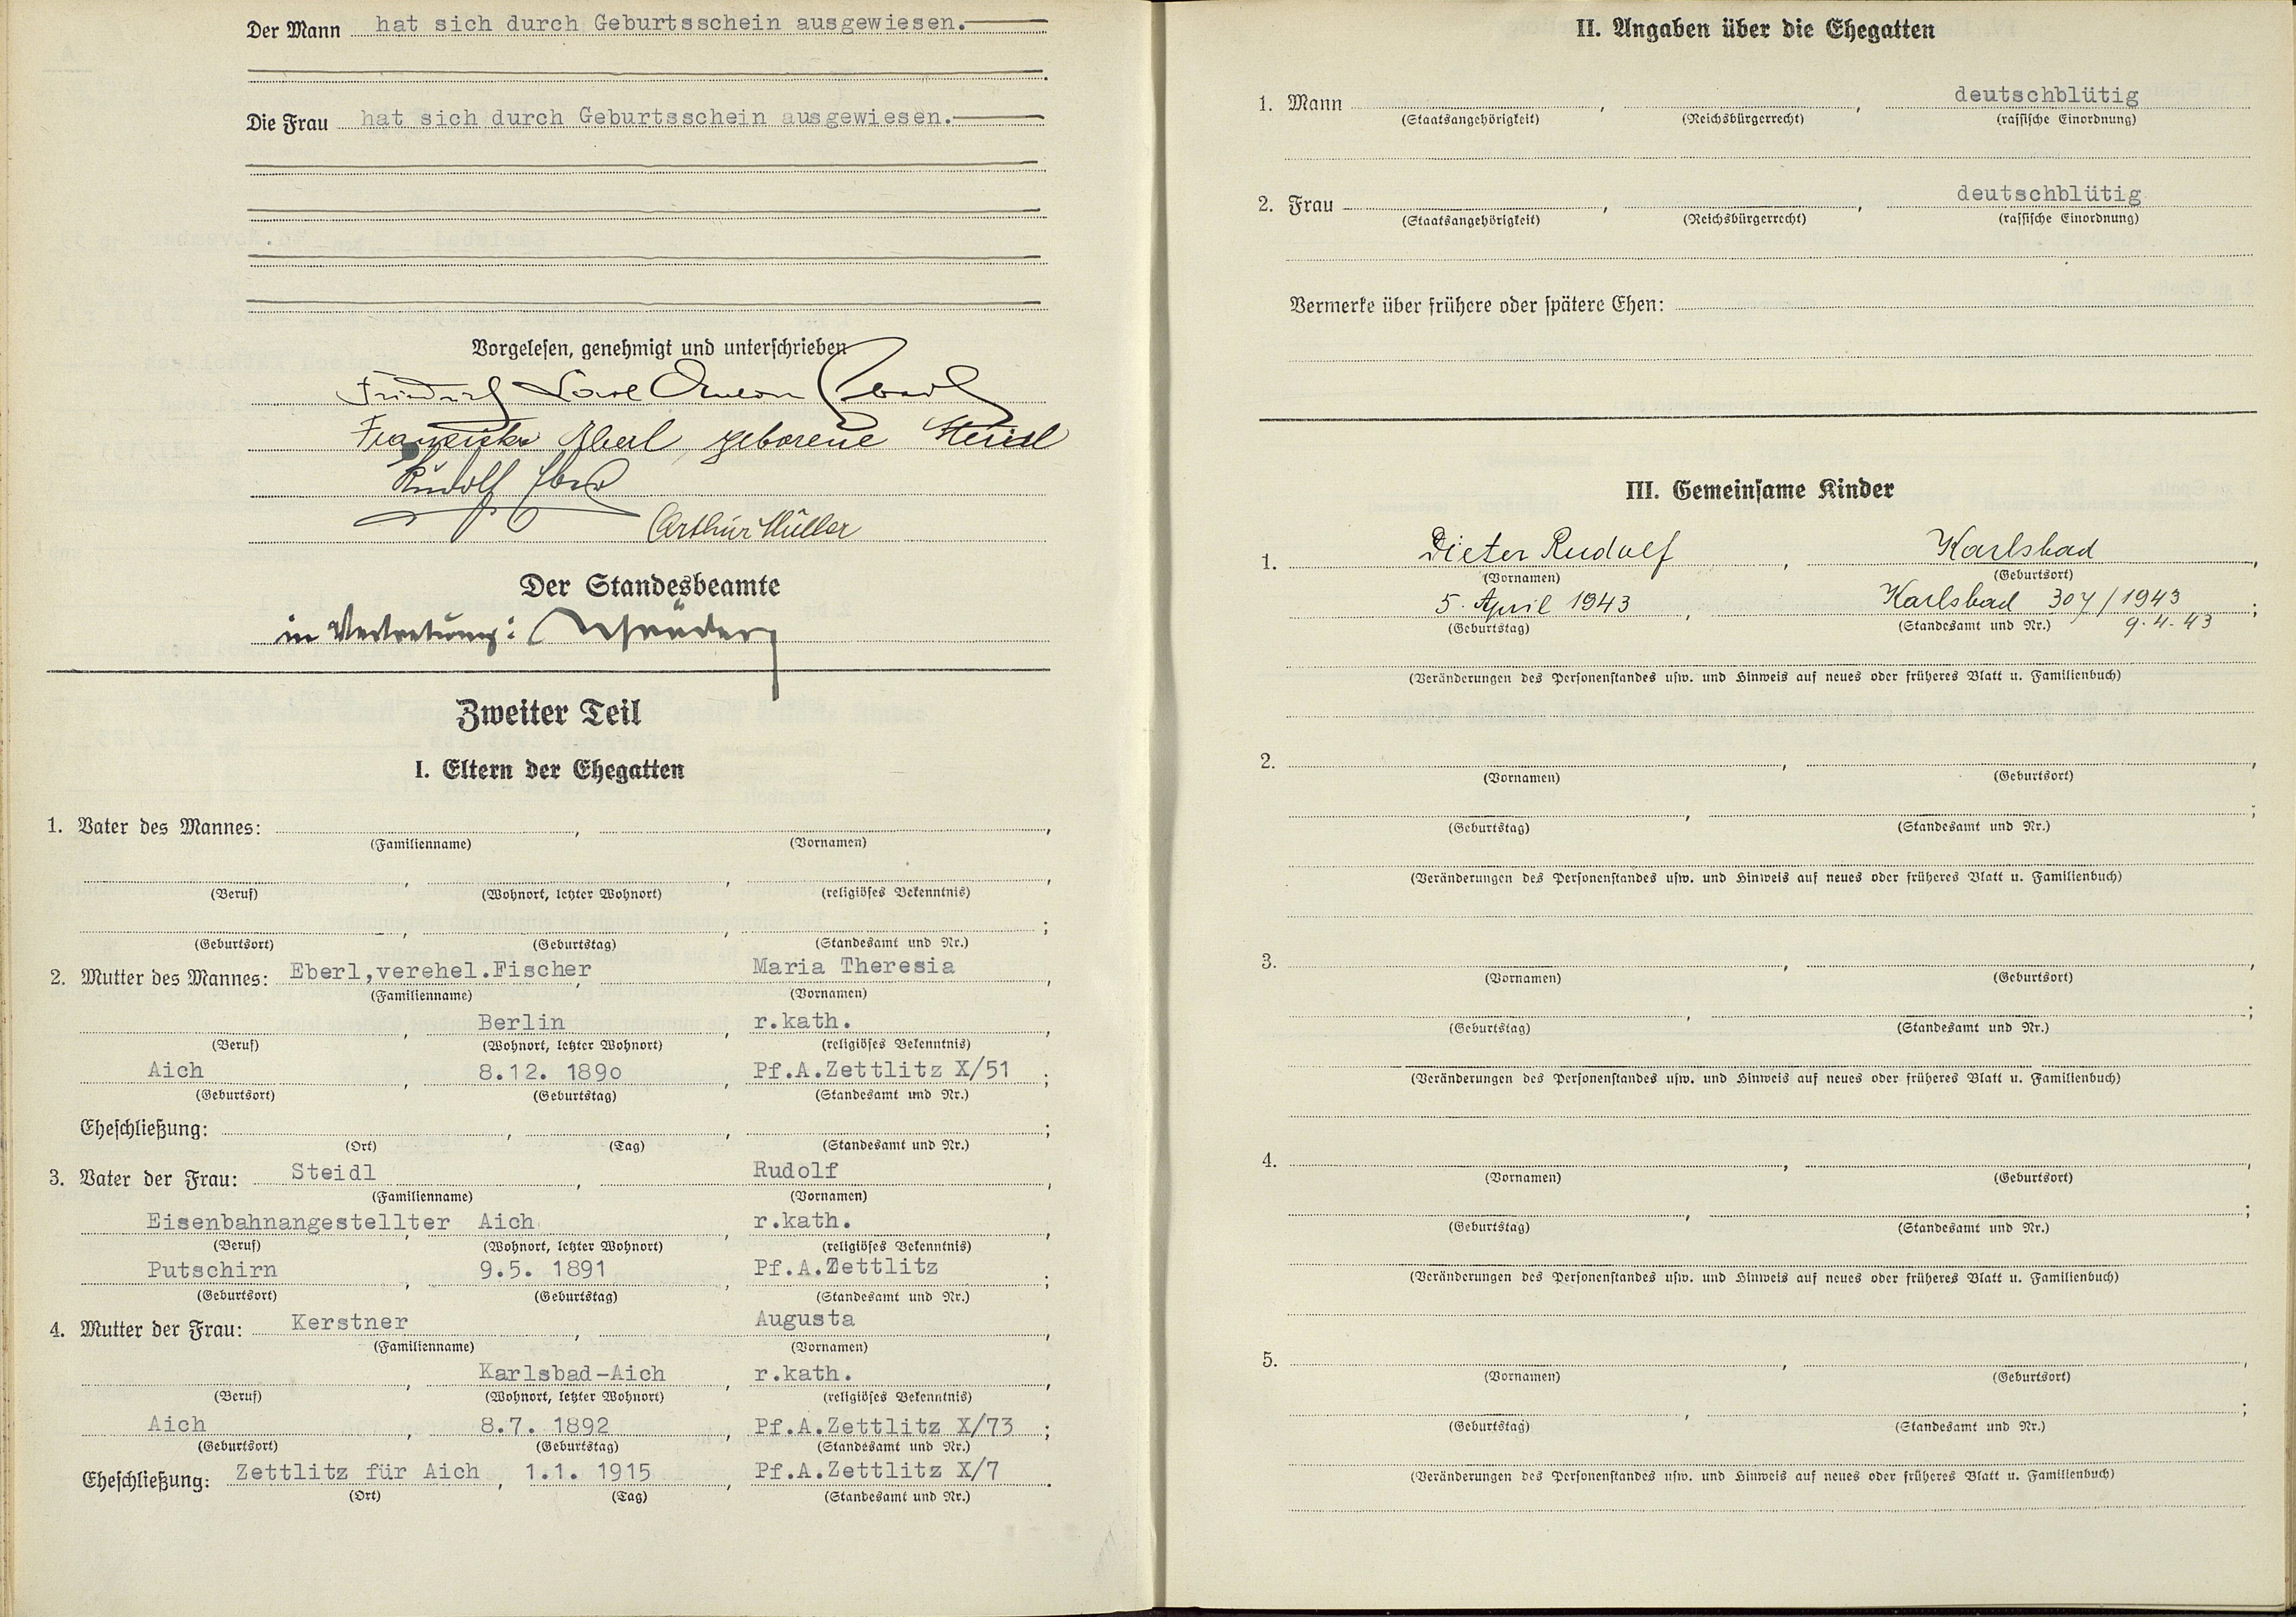 Der Mann hat sich durch Geburtsschein ausgewiesen.
Die Frau hat sich durch Geburtsschein ausgewiesen.
Vorgelesen, genehmigt und unterschrieben
Friedrich Karl Anton Eberl
Franziska Eberl, geborene Steidl
Rudolf Eberl
Arthur Müller
Der Standesbeamte
in Vertretung:
Zweiter Teil
I. Eltern der Ehegatten
1. Vater des Mannes: , ,
(Familienname) (Vornamen)
, , ,
(Beruf) (Wohnort, letzter Wohnort) (religiöses Bekenntnis)
, , ;
(Geburtsort) (Geburtstag) (Standesamt und Nr.)
2. Mutter des Mannes: Eberl,verehel.Fischer , Maria Theresia ,
(Familienname) (Vornamen)
, Berlin , r.kath. ,
(Beruf) (Wohnort, letzter Wohnort) (religiöses Bekenntnis)
Aich , 8.12. 1890 , Pf.A.Zettlitz X/51 ;
(Geburtsort) (Geburtstag) (Standesamt und Nr.)
Eheschließung: , , ;
(Ort) (Tag) (Standesamt und Nr.)
3. Vater der Frau: Steidl , Rudolf ,
(Familienname) (Vornamen)
Eisenbahnangestellter , Aich , r.kath. ,
(Beruf) (Wohnort, letzter Wohnort) (religiöses Bekenntnis)
Putschirn , 9.5. 1891 , Pf.A.Zettlitz ;
(Geburtsort) (Geburtstag) (Standesamt und Nr.)
4. Mutter der Frau: Kerstner , Augusta ,
(Familienname) (Vornamen)
, Karlsbad-Aich , r.kath. ,
(Beruf) (Wohnort, letzter Wohnort) (religiöses Bekenntnis)
Aich , 8.7. 1892 , Pf.A.Zettlitz X/73 ;
(Geburtsort) (Geburtstag) (Standesamt und Nr.)
Eheschließung: Zettlitz für Aich , 1.1. 1915 , Pf.A.Zettlitz X/7 .
(Ort) (Tag) (Standesamt und Nr.)
II. Angaben über die Ehegatten
1. Mann , , deutschblütig
(Staatsangehörigkeit) (Reichsbürgerrecht) (rassische Einordnung)
2. Frau , , deutschblütig
(Staatsangehörigkeit) (Reichsbürgerrecht) (rassische Einordnung)
Vermerke über frühere oder spätere Ehen:
III. Gemeinsame Kinder
1. Dieter Rudolf , Karlsbad ,
(Vornamen) (Geburtsort)
5. April 1943 , Karlsbad 307/1943 ;
(Geburtstag) (Standesamt und Nr.) 9.4.43
(Veränderungen des Personenstandes usw. und Hinweis auf neues oder früheres Blatt u. Familienbuch)
2. , ,
(Vornamen) (Geburtsort)
, ;
(Geburtstag) (Standesamt und Nr.)
(Veränderungen des Personenstandes usw. und Hinweis auf neues oder früheres Blatt u. Familienbuch)
3. , ,
(Vornamen) (Geburtsort)
, ;
(Geburtstag) (Standesamt und Nr.)
(Veränderungen des Personenstandes usw. und Hinweis auf neues oder früheres Blatt u. Familienbuch)
4. , ,
(Vornamen) (Geburtsort)
, ;
(Geburtstag) (Standesamt und Nr.)
(Veränderungen des Personenstandes usw. und Hinweis auf neues oder früheres Blatt u. Familienbuch)
5. , ,
(Vornamen) (Geburtsort)
, ;
(Geburtstag) (Standesamt und Nr.)
(Veränderungen des Personenstandes usw. und Hinweis auf neues oder früheres Blatt u. Familienbuch)